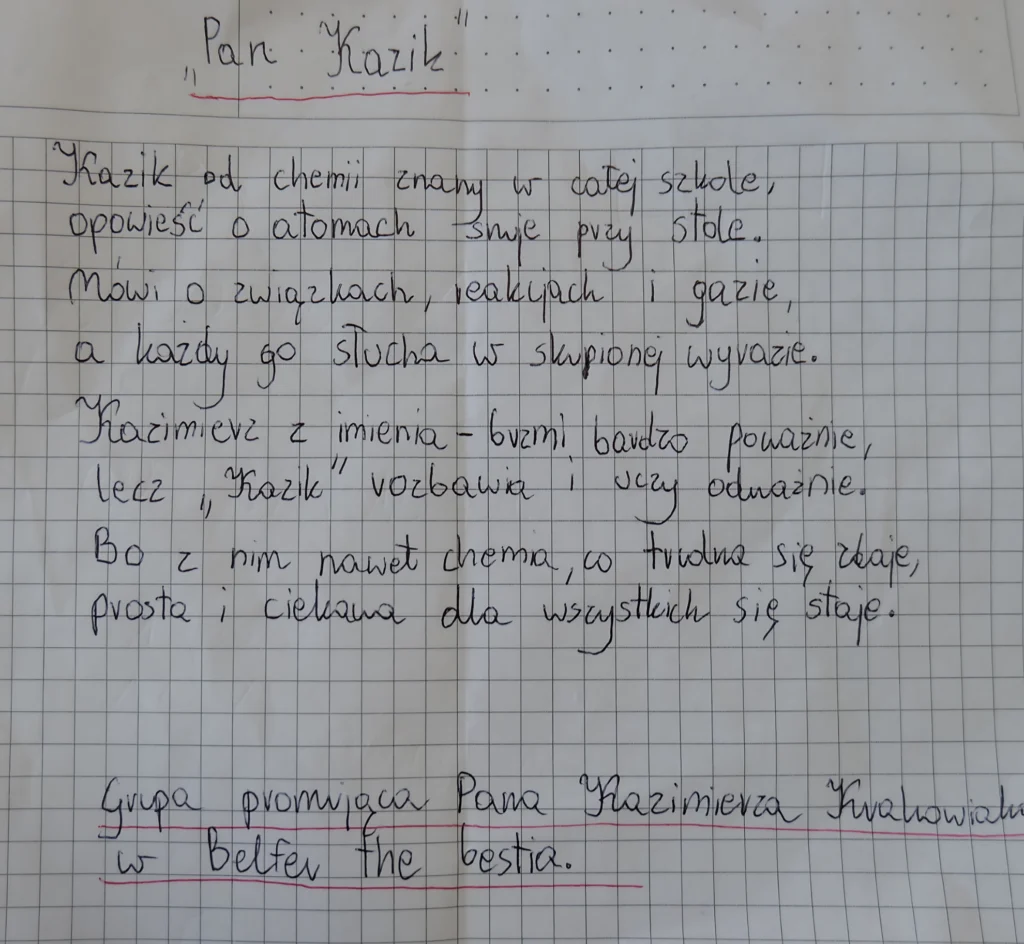 „Pan Kazik"
Kazik od chemii znany w całej szkole,
opowieść o atomach snuje przy stole.
Mówi o związkach, reakcjach i gazie,
a każdy go słucha w skupionej wyrazie.
Kazimierz z imienia - brzmi bardzo poważnie,
lecz „Kazik" rozbawia i uczy odważnie.
Bo z nim nawet chemia, co trudna się zdaje,
prosta i ciekawa dla wszystkich się staje.
Grupa promująca Pana Kazimierza
w Belfer the bestia.